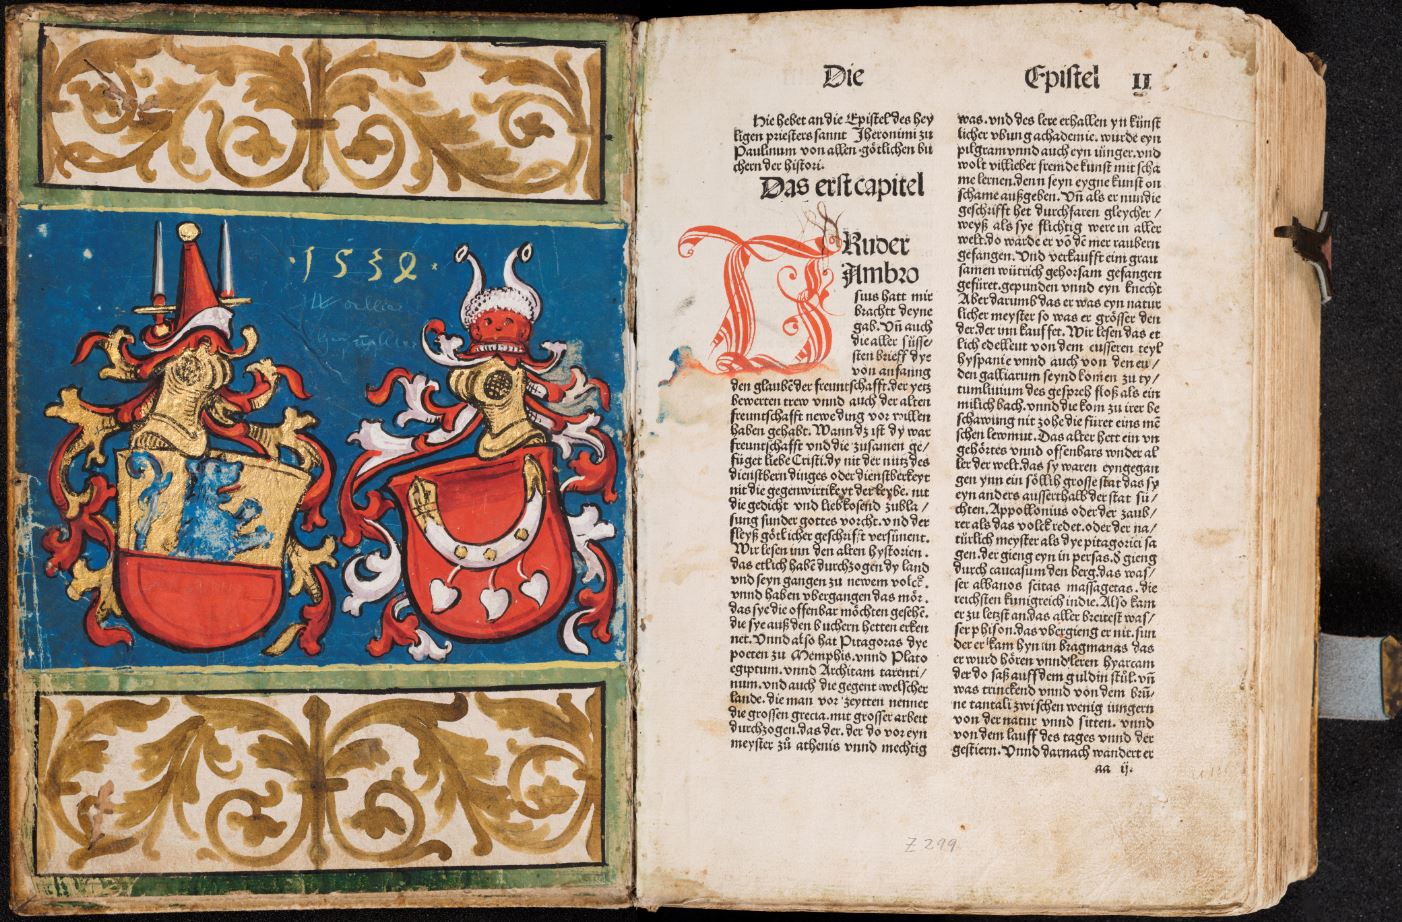 ·1539·
Die
Epistel II
Hie hebet an die Epistel des hey
ligen priesters sannt Iheronimi zu
Paulinum von allen götlichen bů
chern der histori.
Das erst capitel
BRuder
Ambro
sius hatt mir
brachtt deyne
gab. Vñ auch
die aller süsse/
sten brieff dye
von anfanng
den glaubẽ der freuntschafft. der yetz
bewerten trew vnnd auch der alten
freuntschafft newe ding vor willen
haben gehabt. Wann dz ist dy war
freuntschafft vnd die zusamen ge/
füget liebe Cristi. dy nit der nutz des
dienstbern dinges oder dienstberkeyt
nit die gegenwirtikeyt der leybe. nit
die gedicht vnd liebkosend zubla/
sung sunder gottes vorcht. vnd der
fleyß götlicher geschrifft versünent.
Wir lesen inn den alten hystorien.
das etlich habẽ durchzogen dy land
vnd seyn gangen zu newem volck.
vnnd haben vbergangen das mör.
das sye die offenbar möchten gesehẽ.
die sye auß den buchern hetten erken
net. Vnnd also hat Pitagoras dye
poeten zu Memphis. vnnd Plato
egiptum. vnnd Architam tarenti/
num. vnd auch die gegent welscher
lande. die man vor zeytten nennet
die grossen grecia. mit grosser arbeit
durchzogen. das der. der do vor eyn
meyster zů athenis vnnd mechtig
was. vnd des lere erhallen yn künst
licher vbung achademie. wurde eyn
pilgram vnnd auch eyn iünger. vnd
wolt vil lieber fremde kunst mit scha
me lernen. denn seyn eygne kunst on
schame außgeben. Vñ als er nun die
geschrifft het durchfaren gleycher/
weyß als sye flichtig were in aller
welt. do warde er võ dẽ mer raubern
gefangen. Vnd verkaufft eim grau
samen wütrich gehorsam gefangen
gefüret. gepunden vnnd eyn knecht
Aber darumb das er was eyn natur
licher meyster so was er grösser den
der. der inn kauffet. Wir lesen das et
lich edelleut von dem eusseren teyl
hyspanie vnnd auch von den en/
den galliarum seynd komen zu ty/
tum liuium des gesprech floß als ein
milich bach. vnnd die kom zu irer be
schawung nit zohe die füret eins mẽ
schen lewmut. Das alter hett ein vn
gehörtes vnnd offenbars wnder al
ler der welt. das sy waren eyngegan
gen ynn ein söllich grosse stat das sy
eyn anders ausserthalb der stat sů/
chten. Appollonius oder der zaub/
rer als das volck redet. oder der na/
türlich meyster als dye pitagorici sa
gen. der gieng eyn in persas. d gieng
durch caucasum den berg. das was/
ser albanos scitas massagetas. die
reichsten kunigreich indie. Also kam
er zu letzst an. das aller breitest was/
ser phison. das vbergieng er nit. sun
der er kam hyn in bragmanas das
er wurd hören vnnd leren hyarcam
der do saß auff dem guldin stůl. vñ
was trinckend vnnd von dem brů/
ne tantali zwischen wenig iungern
von der natur vnnd sitten. vnnd
von dem lauff des tages vnnd der
gestiern. Vnnd darnach wandert er
aa ij.
Z 299